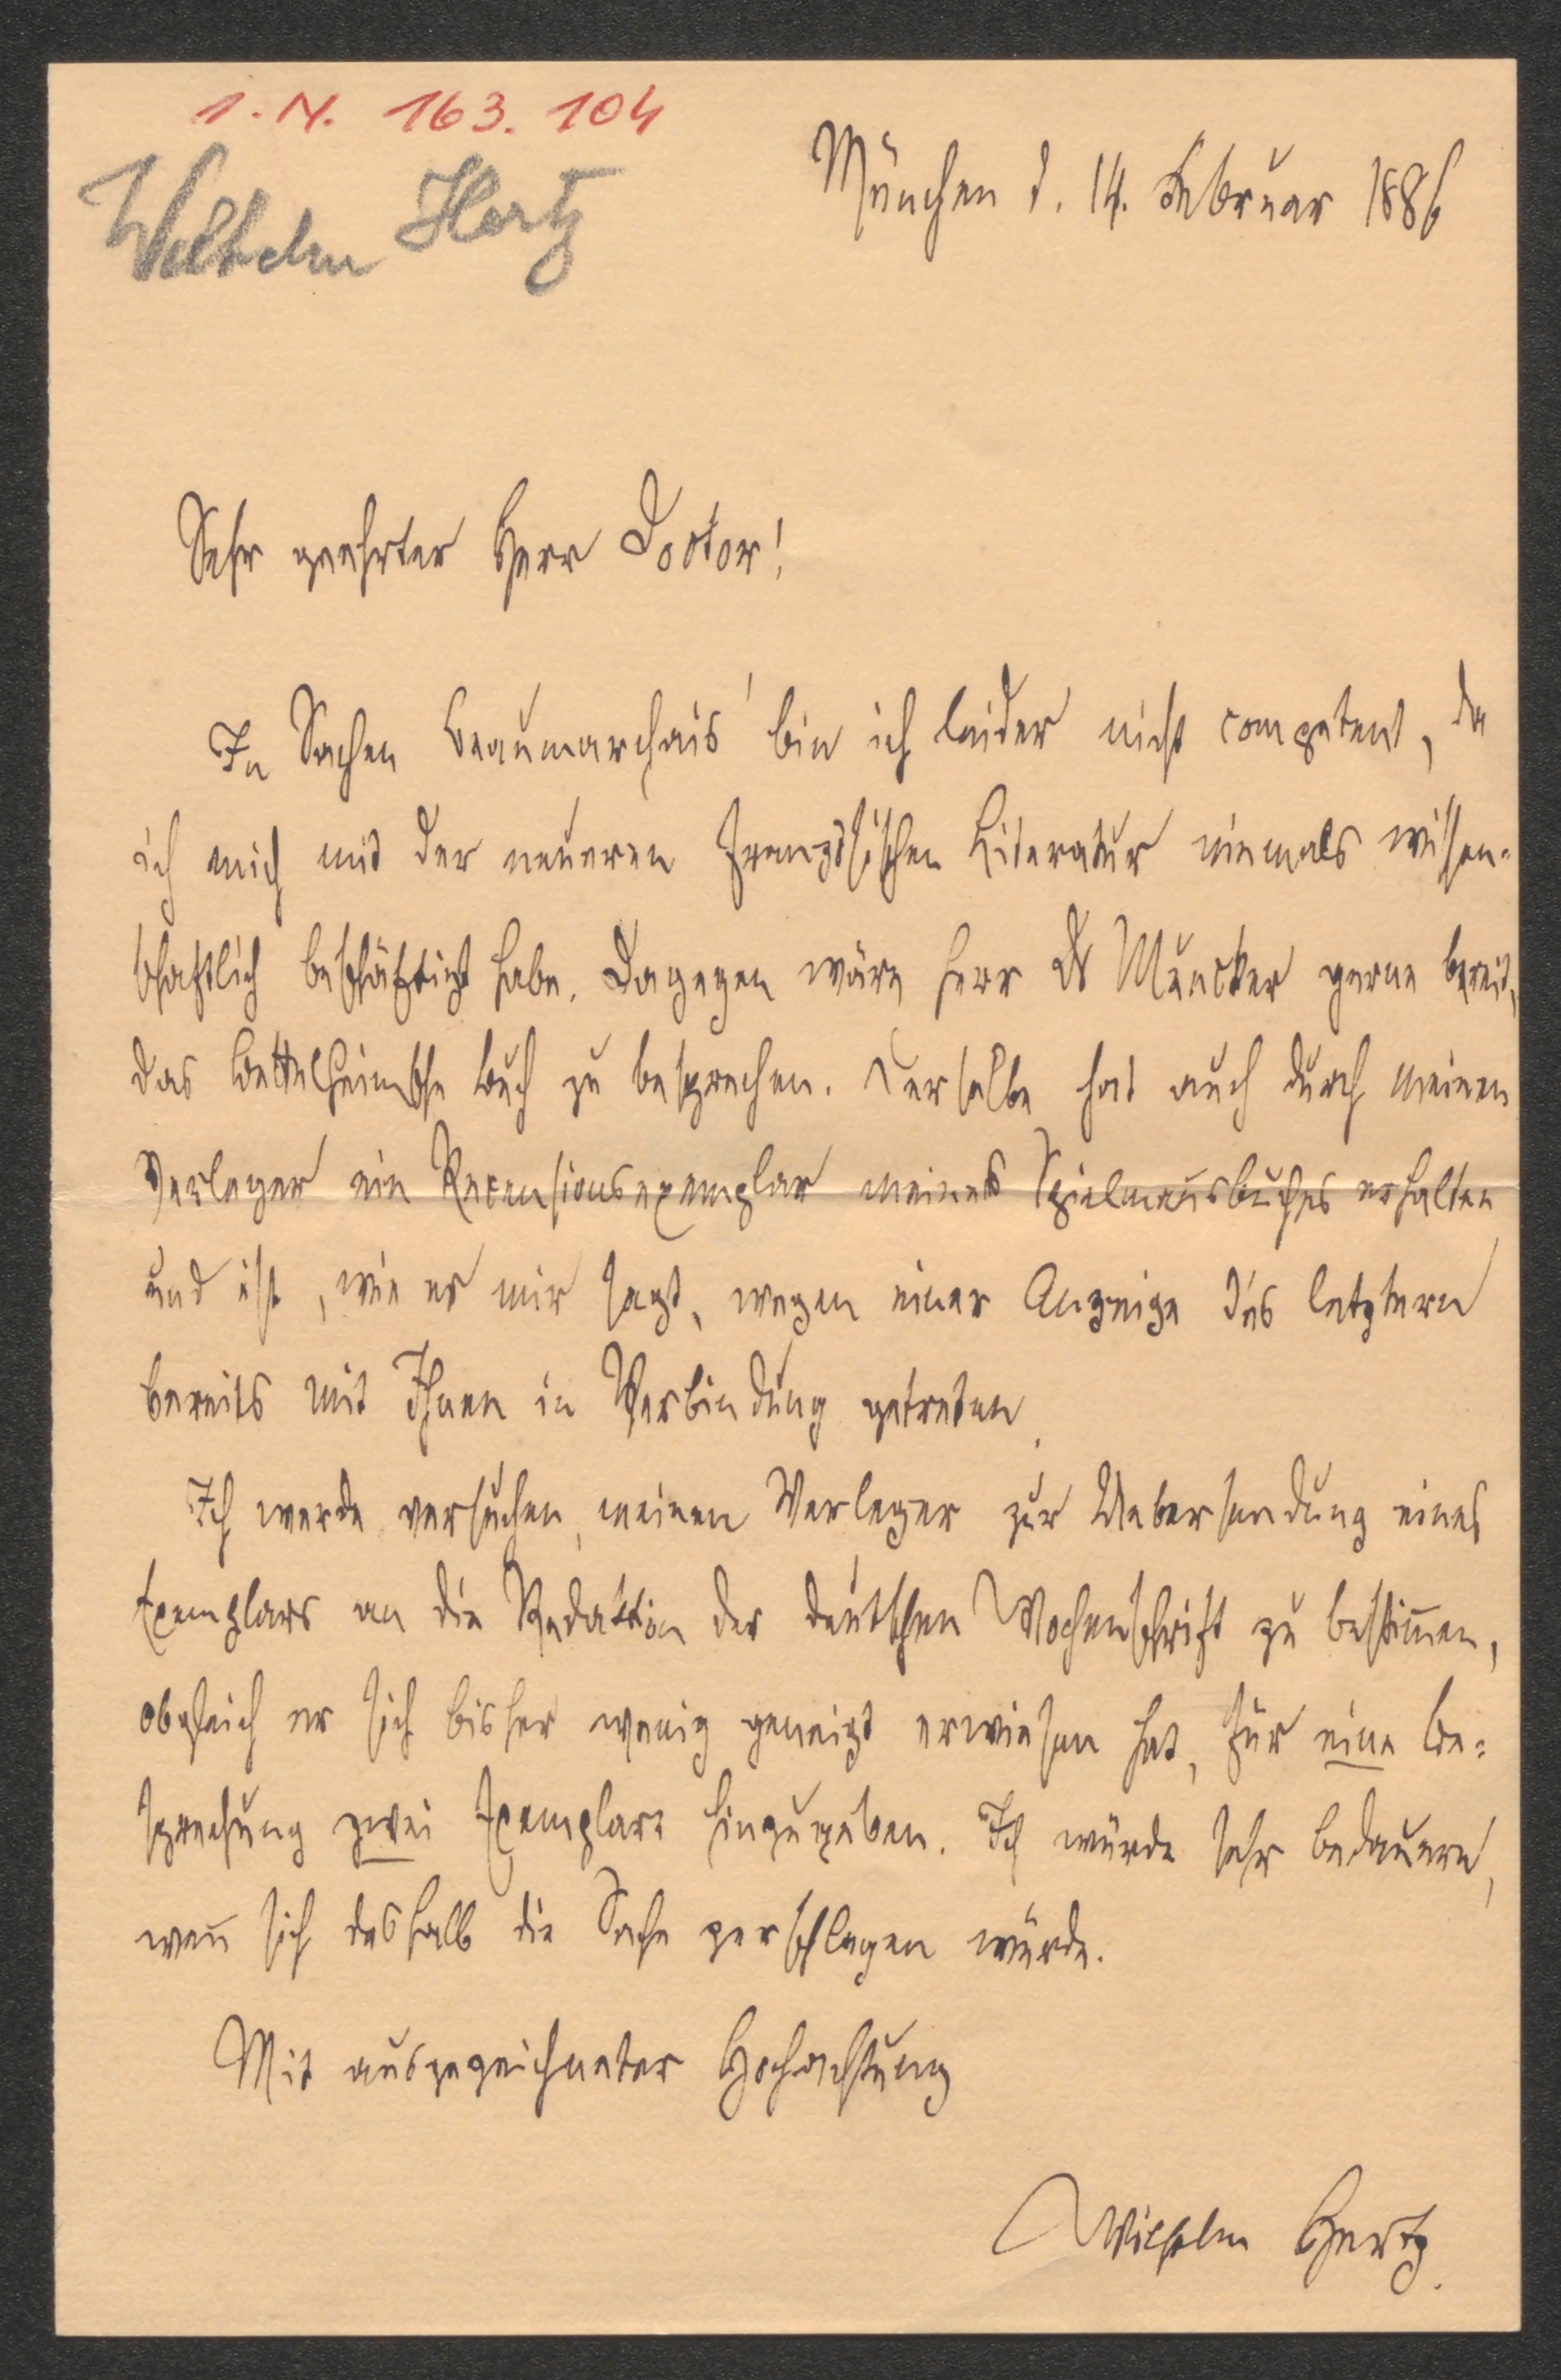 I.N. 163.104
Wilhelm Hertz
München d. 14. Februar 1886
Sehr geehrter Herr Doctor!
In Sachen Beaumarchais' bin ich leider nicht competent, da
ich mich mit der neueren französischen Literatur niemals wissen-
schaftlich beschäftigt habe. Dagegen wäre Herr Dr Muncker gerne bereit,
das Bettelheimsche Buch zu besprechen. Derselbe hat auch durch meinen
Verleger ein Recensionsexemplar meines Spielmannsbuches erhalten
und ist, wie er mir sagt, wegen einer Anzeige des letztern
bereits mit Ihnen in Verbindung getreten.
Ich werde versuchen, meinen Verleger zur Uebersendung eines
Exemplars an die Redaktion der deutschen Wochenschrift zu bestim̅en,
obgleich er sich bisher wenig geneigt erwiesen hat, für eine Be-
sprechung zwei Exemplare hinzugeben. Ich würde sehr bedauern,
wen̅ sich deshalb die Sache zerschlagen würde.
Mit ausgezeichneter Hochachtung
Wilhelm Hertz.